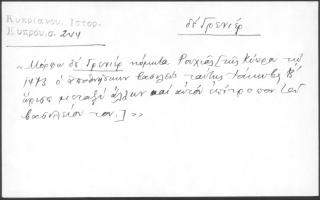 Κυπριανου. Ιστορ.
Κυπρου. σ. 244
δὲ Γρενιέρ
«Μόρφω δὲ Γρενιέρ κόμητα Ρουχᾶς [τῆς Κύπρου τῷ
1473 ὁ ἀποθνήσκων βασιλεὺς ταύτης Ἰάκωβος Β΄
ὥρισε μεταξὺ ἄλλων καὶ αὐτὸν ἐπίτροπον τοῦ
βασιλείου του.]»